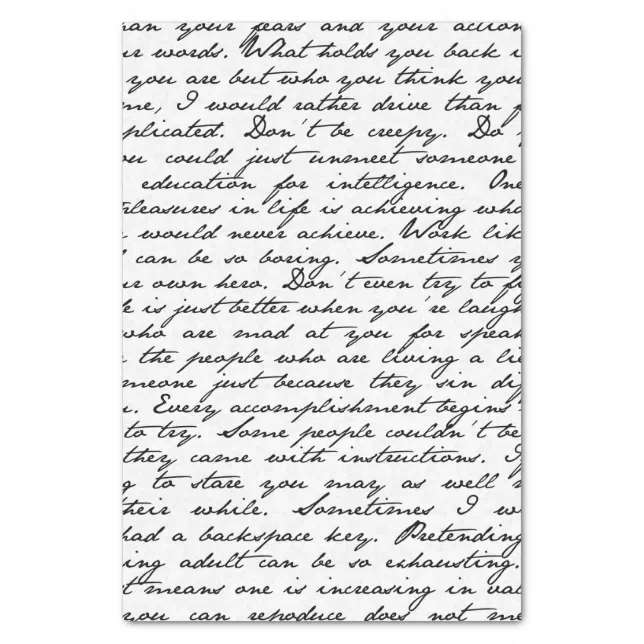 han your fears and your action
r words. What holds you back i
you are but who you think you
me, I would rather drive than f
plicated. Don't be creepy. Do
ou could just unmeet someone
education for intelligence. One
pleasures in life is achieving wha
would never achieve. Work lik
can be so boring. Sometimes y
ur own hero. Don't even try to f
e is just better when you're laugh
who are mad at you for speak
the people who are living a lie
meone just because they sin dif
u. Every accomplishment begins
to try. Some people couldn't be
they came with instructions. I
g to stare you may as well
their while. Sometimes I w
had a backspace key. Pretending
ing adult can be so exhausting.
t means one is increasing in val
you can reproduce does not me